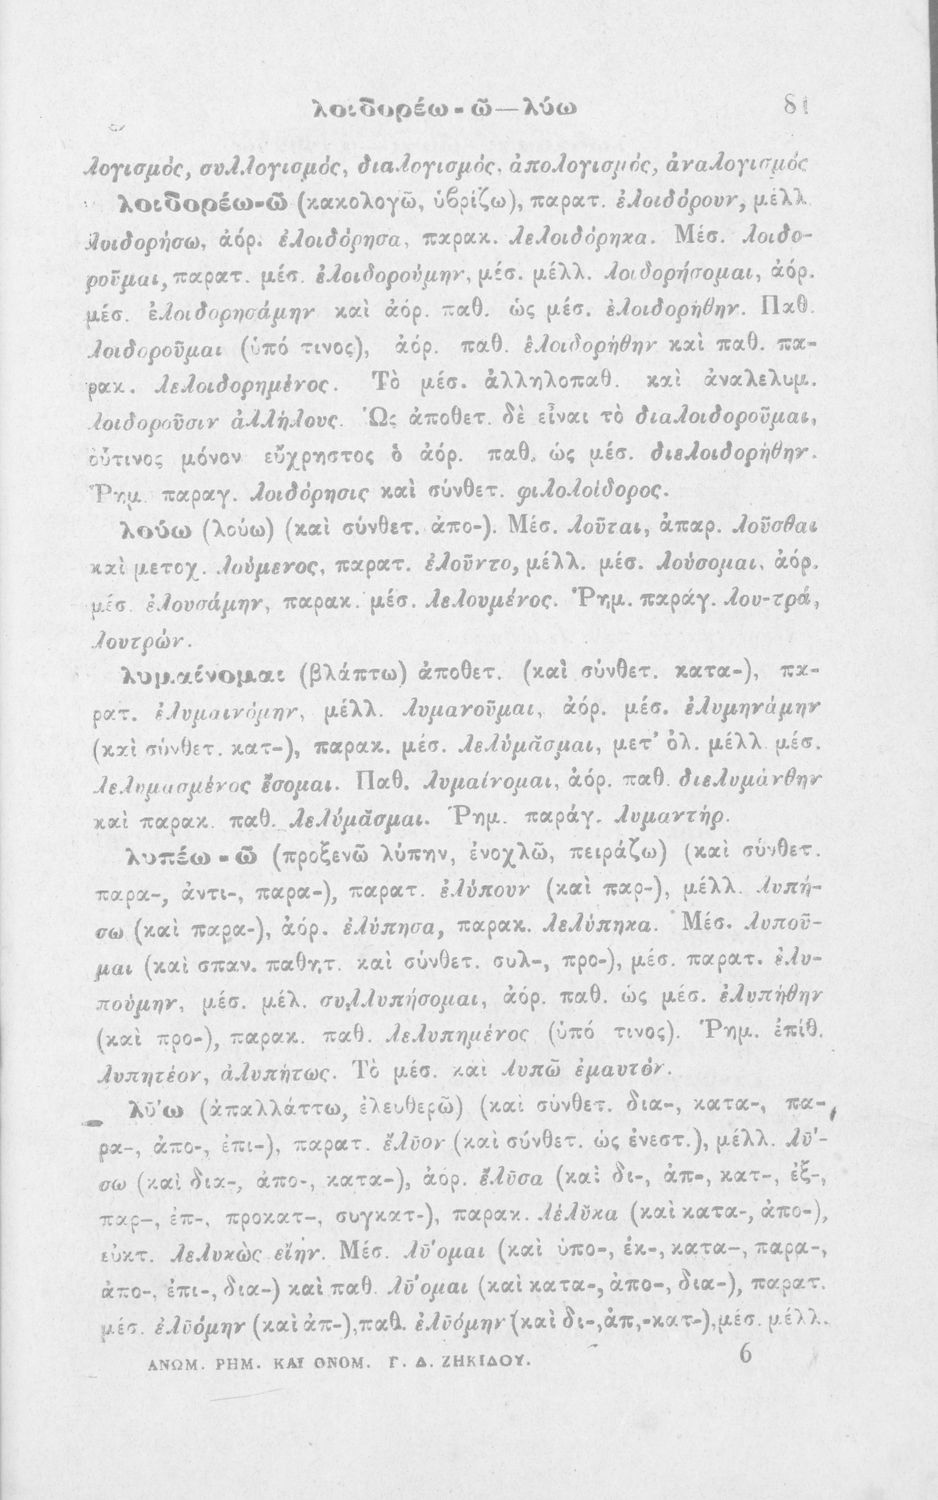 λοιδορέω-ῶ—λύω 81
λογισμός, συλλογισμός, διαλογισμός, ἀπολογισμός, ἀναλογισμός
λοιδορέω-ῶ (κακολογῶ, ὑβρίζω), παρατ. ἐλοιδόρουν, μέλλ
λοιδορήσω, ἀόρ. ἐλοιδόρησα, παρακ. λελοιδόρηκα. Μέσ. λοιδο-
ροῦμαι, παρατ. μέσ. ἐλοιδορούμην, μέσ. μέλλ. λοιδορήσομαι, ἀόρ.
μέσ. ἐλοιδορησάμην καὶ ἀόρ. παθ. ὡς μέσ. ἐλοιδορήθην. Παθ.
λοιδοροῦμαι (ὑπό τινος), ἀόρ. παθ. ἐλοιδορήθην καὶ παθ. πα-
ρακ. λελοιδορημένος. Τὸ μέσ. ἀλληλοπαθ. καὶ ἀναλελυμ.
λοιδοροῦσιν ἀλλήλους. Ὡς ἀποθετ. δὲ εἶναι τὸ διαλοιδοροῦμαι,
οὗτινος μόνον εὔχρηστος ὁ ἀόρ. παθ. ὡς μέσ. διελοιδορήθην.
Ῥημ. παραγ. λοιδόρησις καὶ σύνθετ. φιλολοίδορος.
λούω (λούω) (καὶ σύνθετ. ἀπο-). Μέσ. λοῦται, ἀπαρ. λοῦσθαι
καὶ μετοχ. λούμενος, παρατ. ἐλοῦντο, μέλλ. μέσ. λούσομαι, ἀόρ.
μέσ. ἐλουσάμην, παρακ. μέσ. λελουμένος. Ῥημ. παράγ. λου-τρά,
λουτρών.
λυμαίνομαι (βλάπτω) ἀποθετ. (καὶ σύνθετ. κατα-), πα-
ρατ. ἐλυμαινόμην, μέλλ. λυμανοῦμαι, ἀόρ. μέσ. ἐλυμηνάμην
(καὶ σύνθετ. κατ-), παρακ. μέσ. λελύμᾱσμαι, μετ' ὁλ. μέλλ μέσ.
λελυμασμένος ἔσομαι. Παθ. λυμαίνομαι, ἀόρ. παθ. διελυμάνθην
καὶ παρακ. παθ. λελύμᾱσμαι. Ῥημ. παράγ. λυμαντήρ.
λυπέω-ῶ (προξενῶ λύπην, ἐνοχλῶ, πειράζω) (καὶ σύνθετ.
παρα-, ἀντι-, παρα-), παρατ. ἐλύπουν (καὶ παρ-), μέλλ. λυπή-
σω (καὶ παρα-), ἀόρ. ἐλύπησα, παρακ. λελύπηκα. Μέσ. λυποῦ-
μαι (καὶ σπαν. παθητ. καὶ σύνθετ. συλ-, προ-), μέσ. παρατ. ἐλυ-
πούμην, μέσ. μέλ. συλλυπήσομαι, ἀόρ. παθ. ὡς μέσ. ἐλυπήθην
(καὶ προ-), παρακ. παθ. λελυπημένος (ὑπό τινος). Ῥημ. ἐπίθ.
λυπητέον, ἀλυπήτως. Τὸ μέσ. καὶ λυπῶ ἐμαυτόν.
λῡ́ω (ἀπαλλάττω, ἐλευθερῶ) (καὶ σύνθετ. δια-, κατα-, πα-
ρα-, ἀπο-, ἐπι-), παρατ. ἔλῡον (καὶ σύνθετ. ὡς ἐνεστ.), μέλλ. λῡ́-
σω (καὶ δια-, ἀπο-, κατα-), ἀόρ. ἔλῡσα (καὶ δι-, ἀπ-, κατ-, ἐξ-,
παρ-, ἐπ-, προκατ-, συγκατ-), παρακ. λέλῠκα (καὶ κατα-, ἀπο-),
εὐκτ. λελυκὼς εἴην. Μέσ. λῡ́ομαι (καὶ ὑπο-, ἐκ-, κατα-, παρα-,
ἀπο-, ἐπι-, δια-) καὶ παθ. λῡ́ομαι (καὶ κατα-, ἀπο-, δια-), παρατ.
μέσ. ἐλῡόμην (καὶ ἀπ-), παθ. ἐλῡόμην (καὶ δι-,ἀπ,-κατ-),μέσ. μέλλ.
ΑΝΩΜ. ΡΗΜ. ΚΑΙ ΟΝΟΜ. Γ. Δ. ΖΗΚΙΔΟΥ. 6